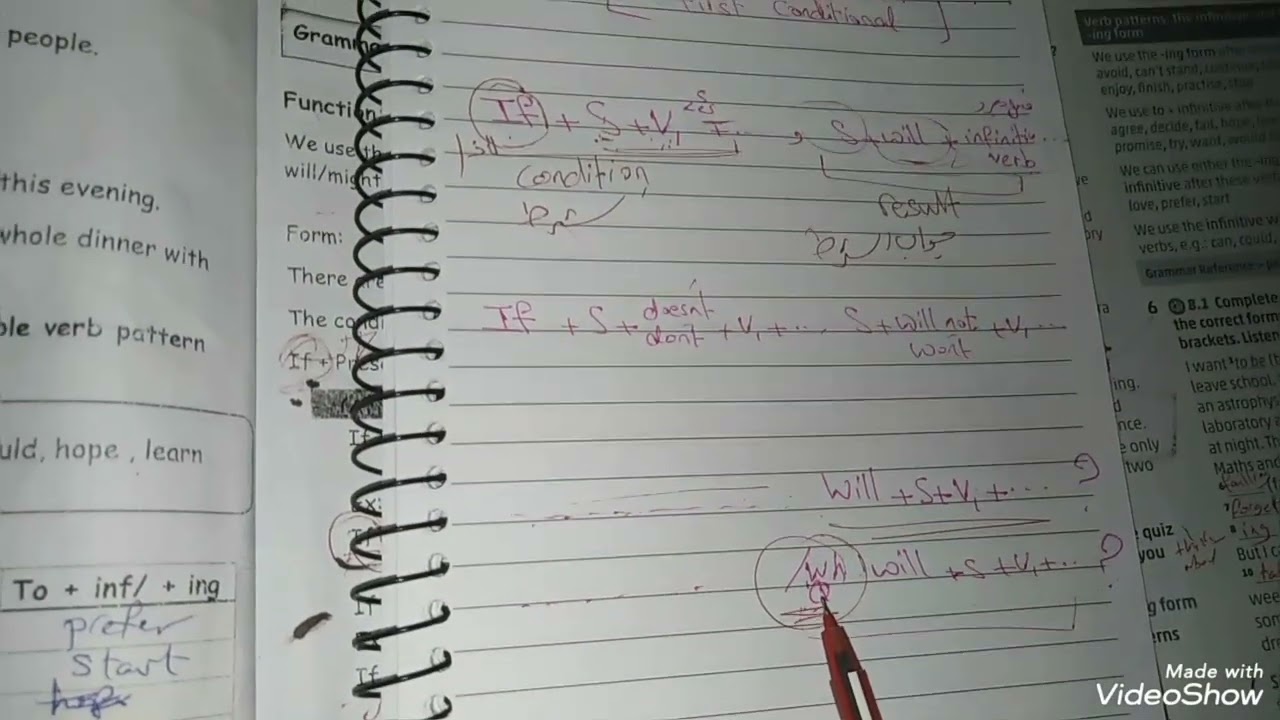 people.
this evening.
whole dinner with
ble verb pattern
uld, hope , learn
To + inf/ + ing
prefer
start
Gramm
Function:
We use th
will/might
Form:
There are
The condi
If + Pres
First Conditional
If + S + V1 s es ies T... , S + will + infinitive verb ...
condition
result
شرط
جواب الشرط
If + S + doesn't don't + V1 + ... S + will not won't + V1 ...
Will + S + V1 + ... ?
Wh will + S + V1 + ... ?
Verb patterns: the infinitive
-ing form
We use the -ing form after
avoid, can't stand,
enjoy, finish, practise, stop
We use to + infinitive after
agree, decide, fail, hope,
promise, try, want, would
We can use either the -ing
infinitive after these ver
love, prefer, start
We use the infinitive w
verbs, e.g.: can, could,
Grammar Reference
6 8.1 Complete
the correct form
brackets. Listen
I want ¹to be (b
leave school.
an astrophys
laboratory
at night. Th
Maths and
ing
But I c
wee
som
dre
ing.
nce.
e only
two
e quiz
you
g form
erns
Made with
VideoShow